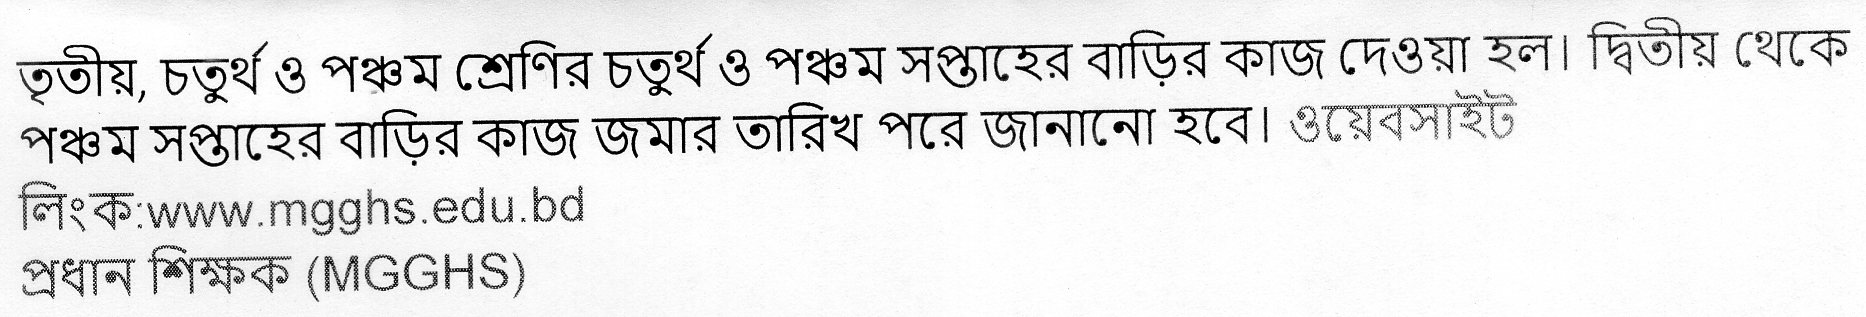 তৃতীয়, চতুর্থ ও পঞ্চম শ্রেণির চতুর্থ ও পঞ্চম সপ্তাহের বাড়ির কাজ দেওয়া হল। দ্বিতীয় থেকে
পঞ্চম সপ্তাহের বাড়ির কাজ জমার তারিখ পরে জানানো হবে। ওয়েবসাইট
লিংক:www.mgghs.edu.bd
প্রধান শিক্ষক (MGGHS)